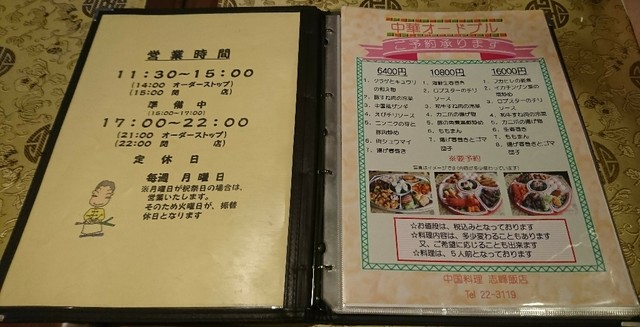 営業時間
11:30～15:00
(14:00 オーダーストップ)
(15:00 閉 店)
準備中
(15:00～17:00)
17:00～22:00
(21:00 オーダーストップ)
(22:00 閉 店)
定休日
毎週 月曜日
※月曜日が祝祭日の場合は、
営業いたします。
そのため火曜日が、振替
休日となります
中華オードブル
ご予約承ります
6400円
1. クラゲとキュウリ
の和え物
2. 豚すね肉の冷菜
3. 中国風サンギ
4. えびチリソース
5. ニンニクの芽と
豚肉炒め
6. 肉シュウマイ
7. 揚げ春巻き
10800円
1. 海鮮生春巻き
2. ロブスターのチリ
ソース
3. 和牛すね肉の冷菜
4. カニ爪の揚げ物
5.
6. ももまん
7. 揚げ春巻きとゴマ
団子
16000円
1. フカヒレの姿煮
2. イカホンゲン菜の
塩炒め
3. ロブスターのチリ
ソース
4. 和牛すね肉の冷菜
5. カニ爪の揚げ物
6. 生春巻き
7. ももまん
8. 揚げ春巻きとゴマ
団子
※要予約
写真はイメージです(内容が多少変わります)
☆お値段は、税込みとなっております
☆料理内容は、多少変わることもあります
又、ご希望に応じることも出来ます
☆料理は、５人前となっております
中国料理 志峰飯店
Tel 22-3119